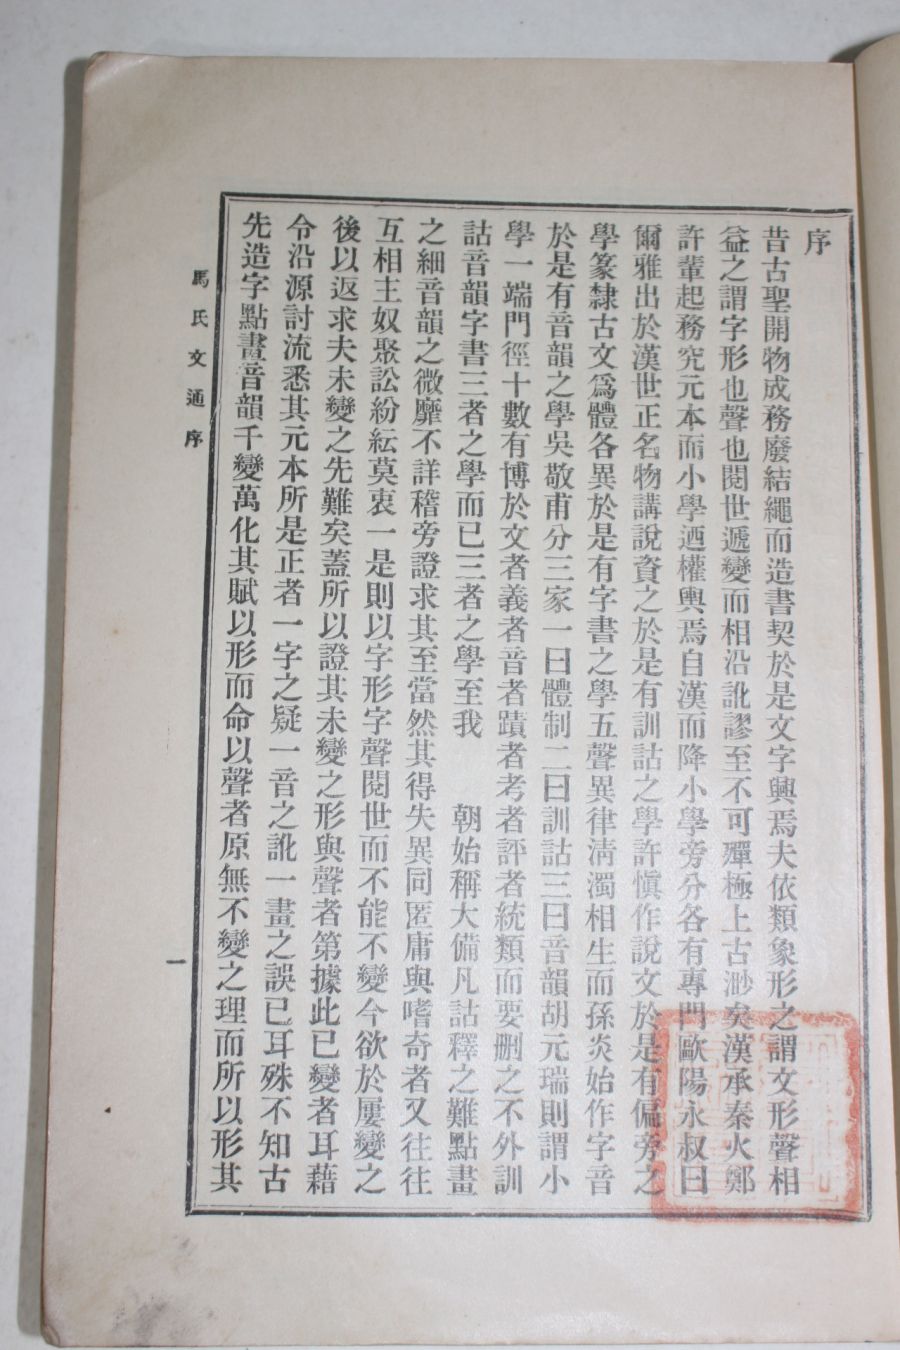 序
昔古聖開物成務廢結繩而造書契於是文字興焉夫依類象形之謂文形聲相
益之謂字形也聲也閱世遞變而相沿訛謬至不可殫極上古渺矣漢承秦火鄭
許輩起務究元本而小學迺權輿焉自漢而降小學旁分各有專門歐陽永叔曰
爾雅出於漢世正名物講說資之於是有訓詁之學許愼作說文於是有偏旁之
學篆隸古文爲體各異於是有字書之學五聲異律淸濁相生而孫炎始作字音
於是有音韻之學吳敬甫分三家一曰體制二曰訓詁三曰音韻胡元瑞則謂小
學一端門徑十數有博於文者義者音者蹟者考者評者統類而要刪之不外訓
詁音韻字書三者之學而已三者之學至我　朝始稱大備凡詁釋之難點畫
之細音韻之微靡不詳稽旁證求其至當然其得失異同匿庸與嗜奇者又往往
互相主奴聚訟紛紜莫衷一是則以字形字聲閱世而不能不變今欲於屢變之
後以返求夫未變之先難矣蓋所以證其未變之形與聲者第據此已變者耳藉
令沿源討流悉其元本所是正者一字之疑一音之訛一畫之誤已耳殊不知古
先造字點畫音韻千變萬化其賦以形而命以聲者原無不變之理而所以形其
馬氏文通序
一